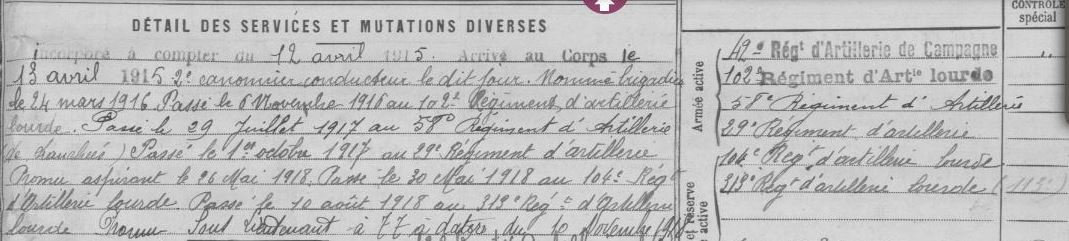 DÉTAIL DES SERVICES ET MUTATIONS DIVERSES
incorporé à compter du 12 avril 1915. Arrivé au Corps le
13 avril 1915 2e canonnier conducteur le dit jour. Nommé brigadier
le 24 mars 1916. Passé le 6 Novembre 1916 au 102e Régiment d'artillerie
lourde. Passé le 29 Juillet 1917 au 58e Régiment d'Artillerie
(de tranchées) Passé le 1er octobre 1917 au 29e Régiment d'artillerie
Promu aspirant le 26 Mai 1918. Passé le 30 Mai 1918 au 104e Régt
d'Artillerie lourde. Passé le 10 août 1918 au 213e Régt d'Artillerie
lourde Promu Sous Lieutenant à TT à dater du 10 Novembre 1918
Armée active
et réserve
active
42e Régt d'Artillerie de Campagne
102e Régiment d'Artie lourde
58e Régiment d'Artillerie
29e Régiment d'artillerie
104e Régt d'artillerie lourde
213e Régt d'artillerie lourde (113e)
CONTRÔLE
spécial
"